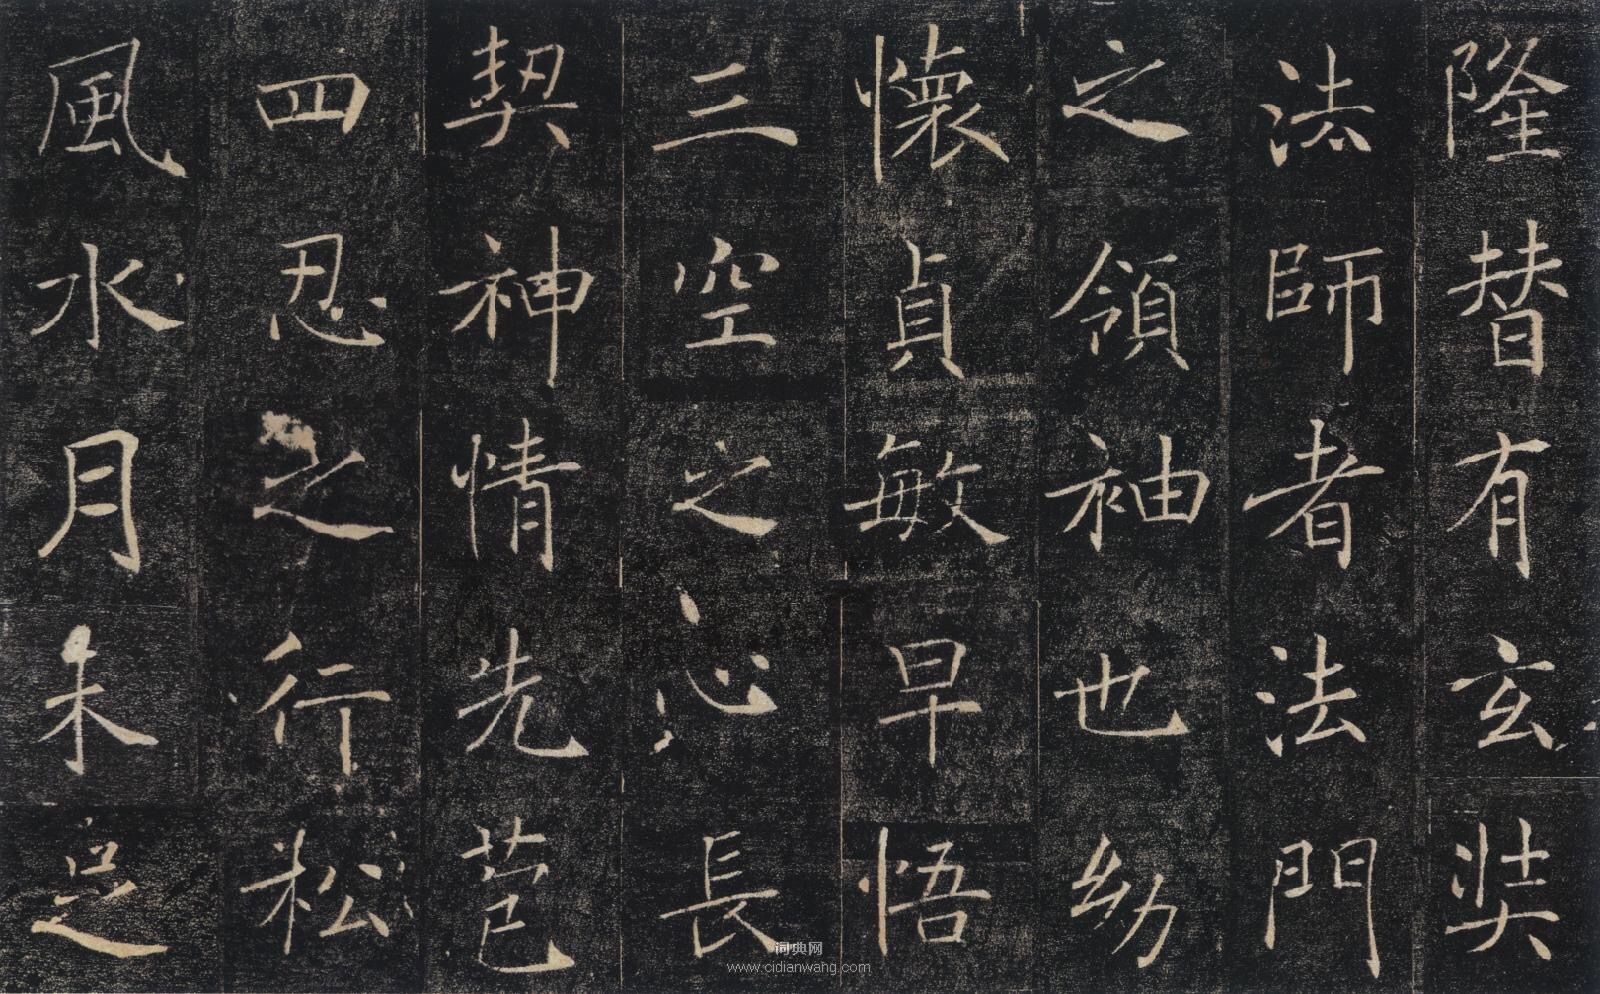 隆替有玄奘
法師者法門
之領袖也幼
懷貞敏早悟
三空之心長
契神情先苞
四忍之行松
風水月未足
词典网
www.cidianwang.com